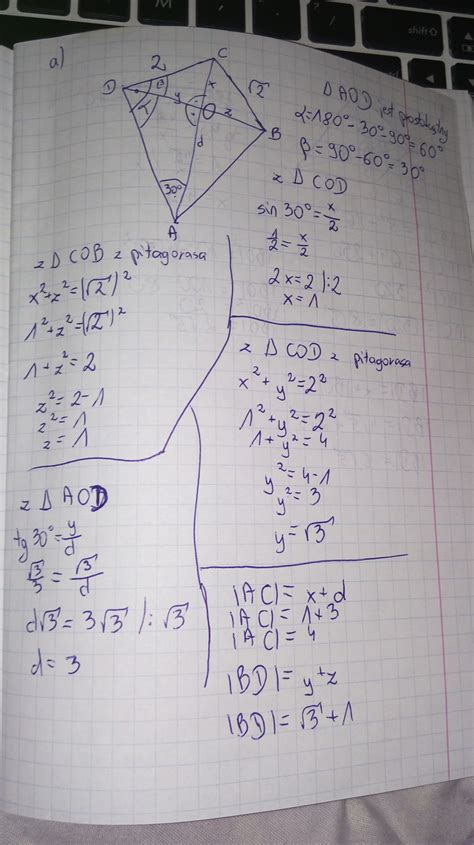 shift
a)
C
2
D
β
y
x
√2
α
O
z
B
d
30°
A
△ AOD jest prostokątny
α=180°-30°-90°=60°
β=90°-60°=30°
z △ COD
sin30°=x/2
1/2=x/2
2x=2 |:2
x=1
z △ COB z pitagorasa
x²+z²=(√2)²
1²+z²=(√2)²
1+z²=2
z²=2-1
z²=1
z=1
z △ COD z pitagorasa
x²+y²=2²
1²+y²=2²
1+y²=4
y²=4-1
y²=3
y=√3
z △ AOD
tg30°=y/d
√3/3=√3/d
d√3=3√3 |:√3
d=3
|AC|=x+d
|AC|=1+3
|AC|=4
|BD|=y+z
|BD|=√3+1